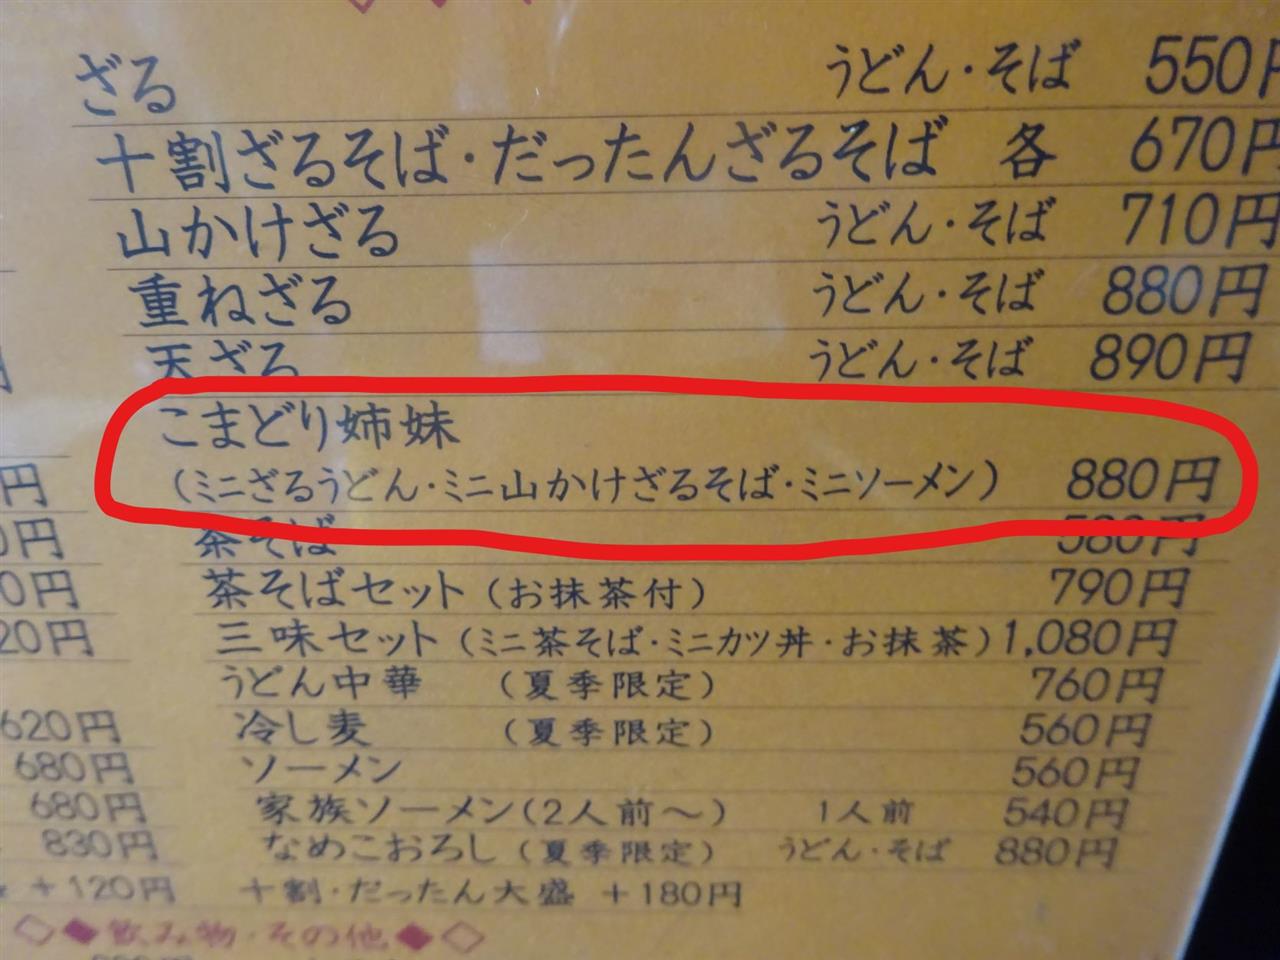 ざる うどん・そば 550円
十割ざるそば・だったんざるそば 各 670円
山かけざる うどん・そば 710円
重ねざる うどん・そば 880円
天ざる うどん・そば 890円
こまどり姉妹
(ミニざるうどん・ミニ山かけざるそば・ミニソーメン) 880円
円
茶そば 580円
0円
茶そばセット(お抹茶付) 790円
0円
三味セット(ミニ茶そば・ミニカツ丼・お抹茶) 1,080円
20円
うどん中華 (夏季限定) 760円
620円 冷し麦 (夏季限定) 560円
680円 ソーメン 560円
680円 家族ソーメン(2人前~) 1人前 540円
830円 なめこおろし(夏季限定) うどん・そば 880円
+120円 十割・だったん大盛 +180円
◇◆飲み物・その他◆◇